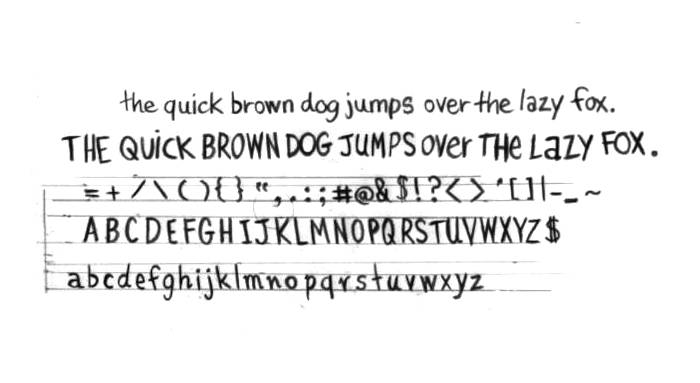 the quick brown dog jumps over the lazy fox.
THE QUiCK BROWN DOG JUMPS over THe LaZY FOX.
= + / \ ( ) { } “ , . : ; # @ & $ ! ? < > ' [ ] | - _ ~
A B C D E F G H I J K L M N O P Q R S T U V W X Y Z $
a b c d e f g h i j k l m n o p q r s t u v w x y z